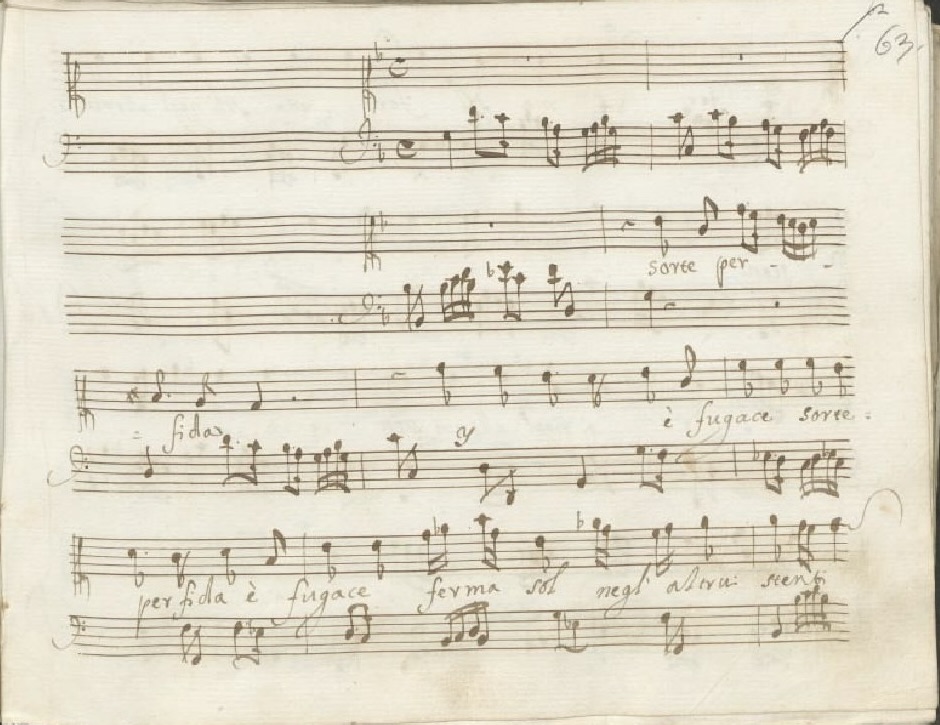 63.
sorte per - -
= fida è fugace sorte =
perfida è fugace ferma sol negl' altrui stenti